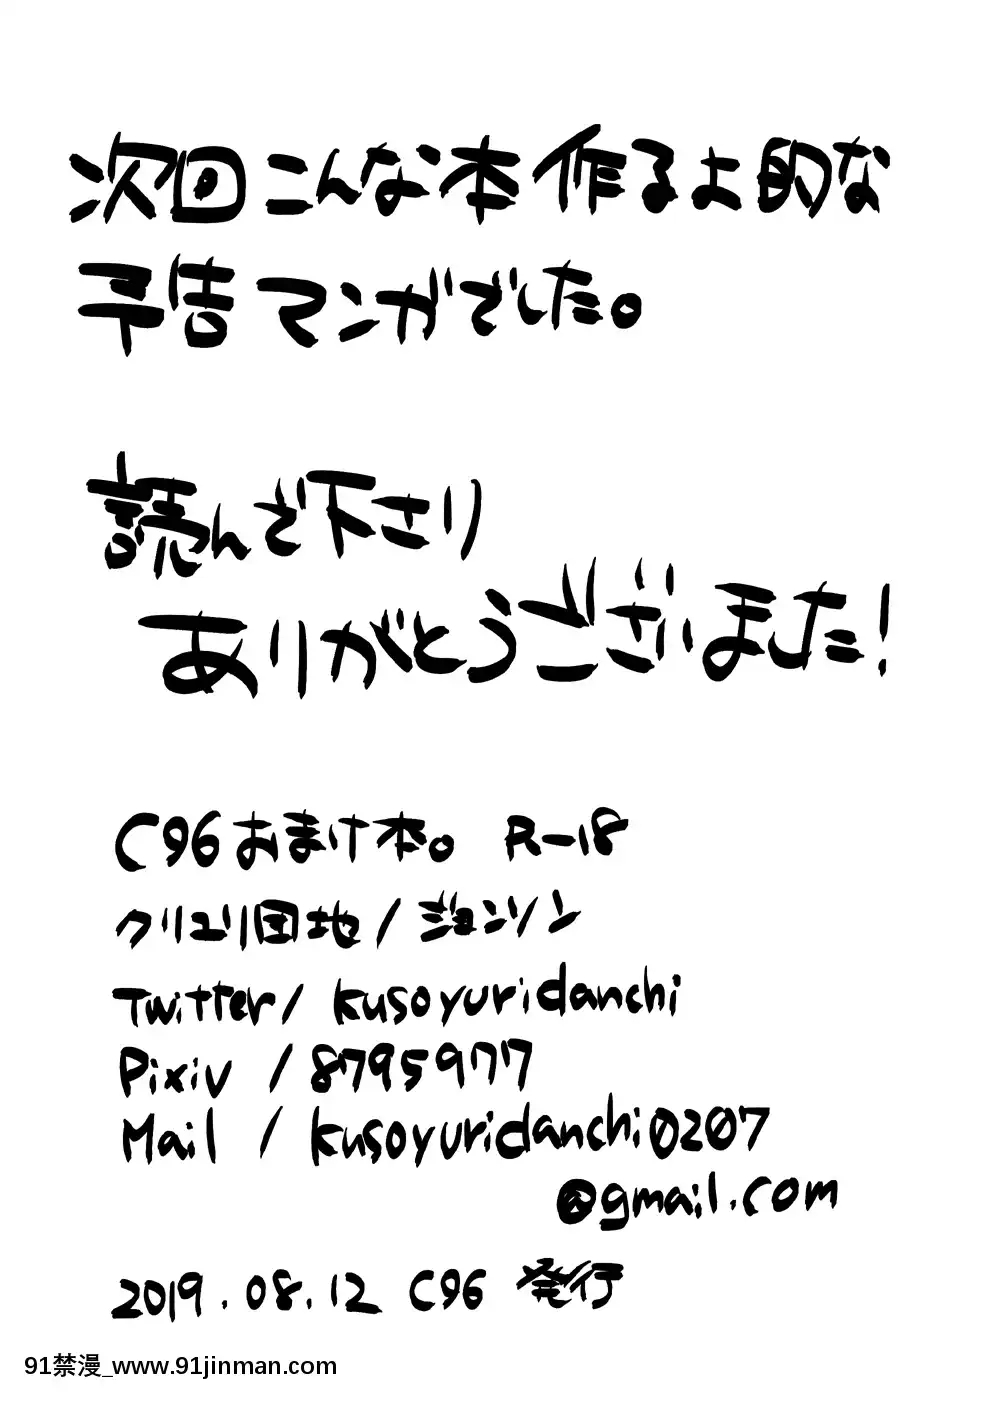 次回こんな本作るよ的な
予告マンガでした。
読んで下さり
ありがとうございました!
C96おまけ本。 R-18
クリユリ団地/ジョンソン
Twitter/ kusoyuridanchi
Pixiv / 8795977
Mail / kusoyuridanchi0207
@gmail.com
2019.08.12 C96 発行
91禁漫_www.91jinman.com